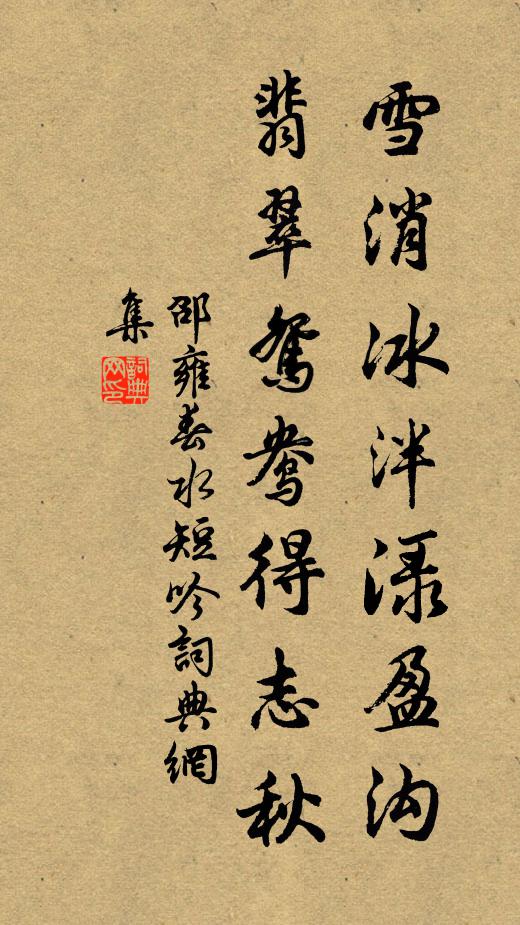 雪消冰泮渌盈沟
翡翠鸳鸯得志秋
邵雍春水短吟詞典網
集
詞典
网印